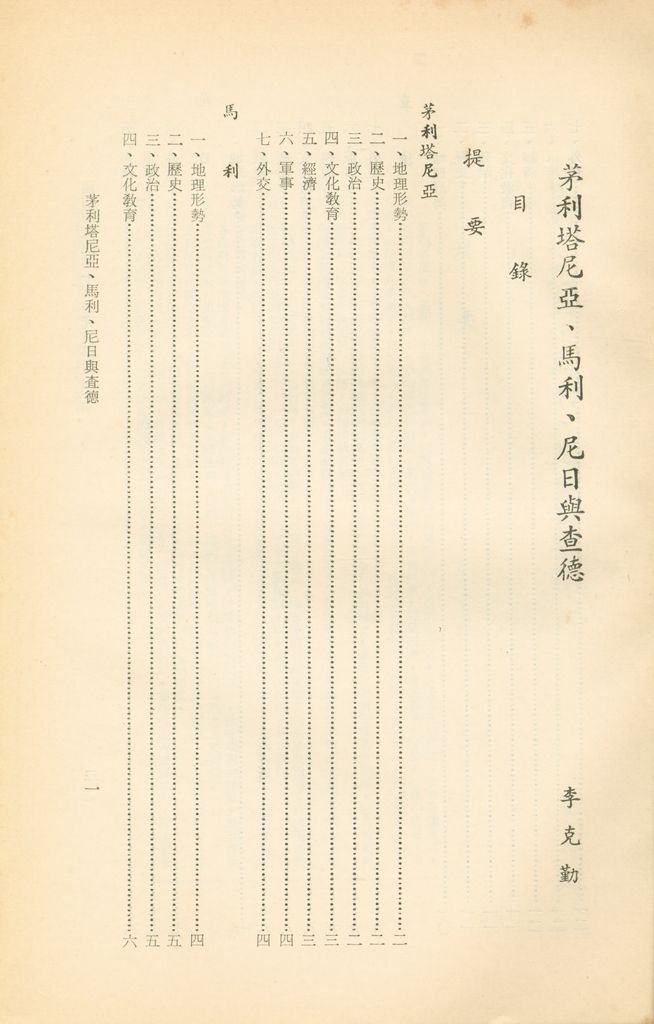 茅利塔尼亞、馬利、尼日與查德
李克勤
目錄
提要
茅利塔尼亞
一、地理形勢……二
二、歷史……二
三、政治……二
四、文化教育……三
五、經濟……三
六、軍事……四
七、外交……四
馬利
一、地理形勢……四
二、歷史……五
三、政治……五
四、文化教育……六
茅利塔尼亞、馬利、尼日與查德
一